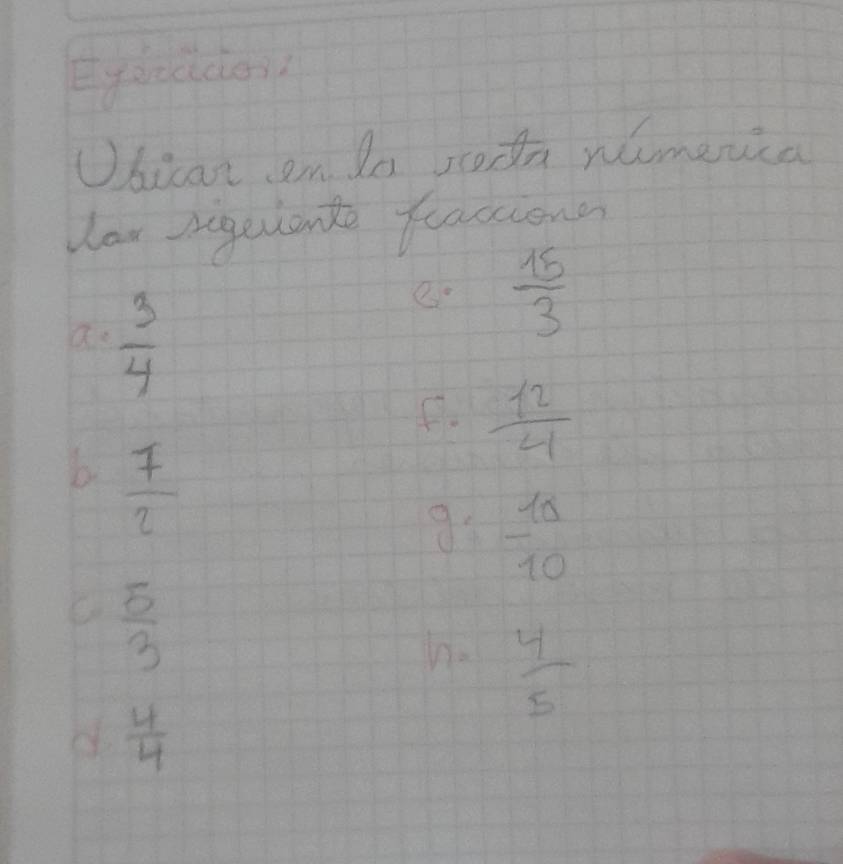 Ejercicios:
Ubicar en la recta númerica
las siguiente fracciones
a. 3/4
b. 7/2
c. 5/3
d. 4/4
e. 15/3
f. 12/4
g. 10/10
h. 4/5